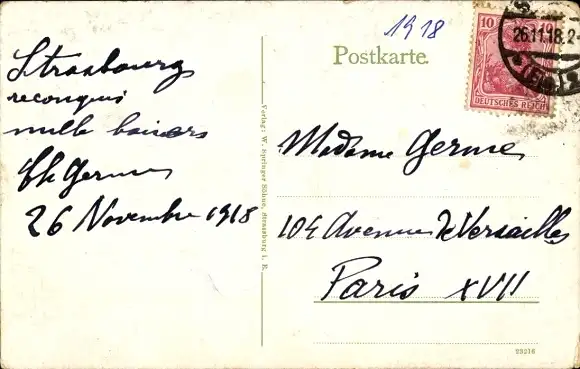 1918
Postkarte.
10 10
DEUTSCHES REICH
26.11.18. 2-
(Els.)
Strasbourg
reconquis
mille baisers
Ch Germe
26 Novembre 1918
Verlag: W. Springer Söhne, Strassburg i. E.
Madame Germe
104 Avenue de Versailles
Paris XVII
29216